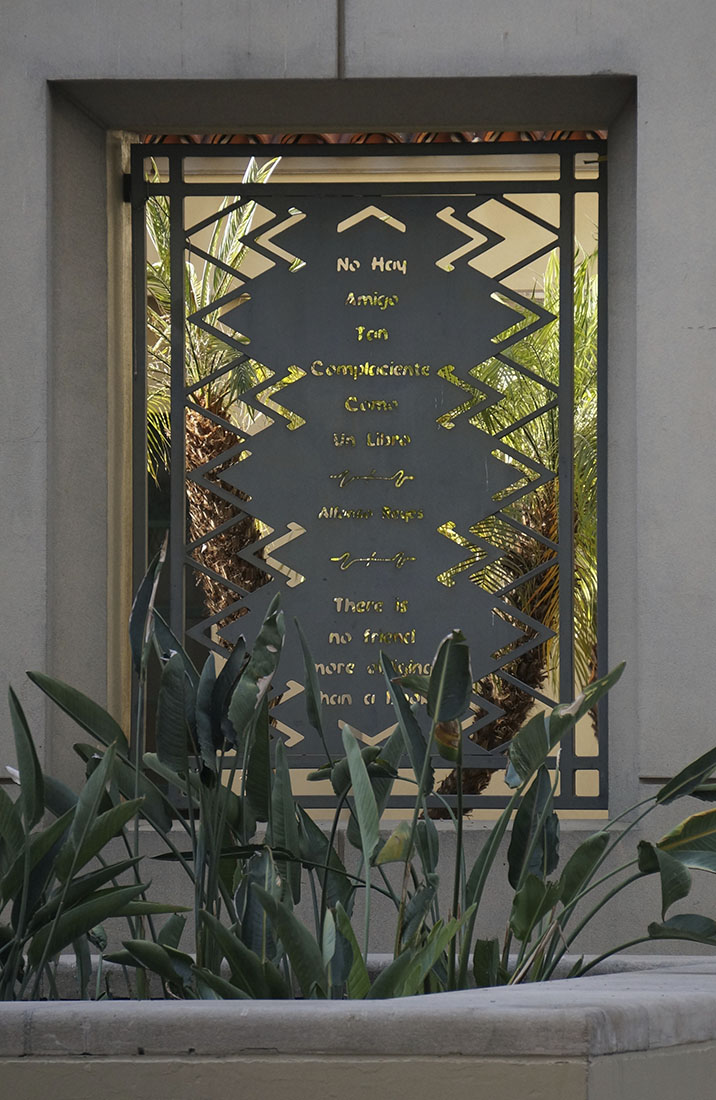 No Hay
Amigo
Tan
Complaciente
Como
Un Libro
Alfonso Reyes
There is
no friend
more obliging
than a book